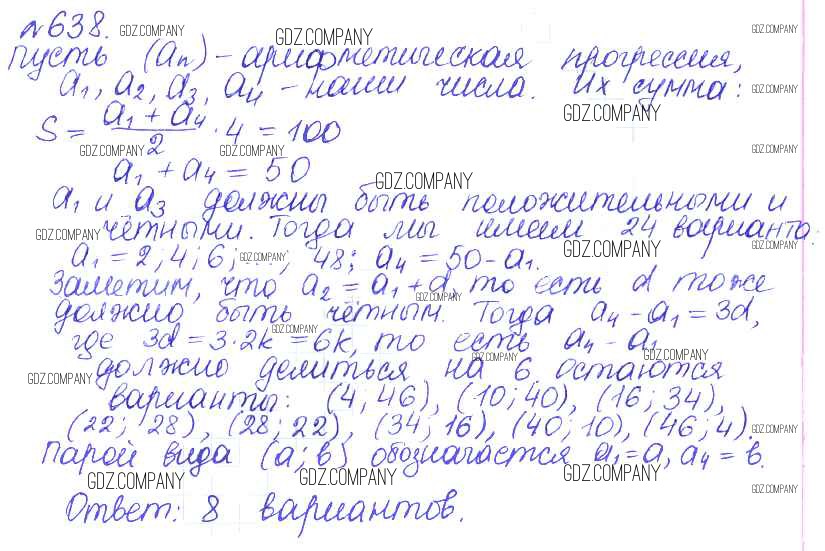 №638. GDZ.COMPANY GDZ.COMPANY GDZ.COMPANY
Пусть (an) - арифметическая прогрессия,
a1, a2, a3, a4 - наши числа. Их сумма: GDZ.COMPANY
S = (a1 + a4)/2 · 4 = 100 GDZ.COMPANY
GDZ.COMPANY GDZ.COMPANY GDZ.COMPANY
a1 + a4 = 50 GDZ.COMPANY
a1 и a3 должны быть положительными и
GDZ.COMPANY чётными. Тогда мы имеем 24 варианта: GDZ.COMPANY
a1 = 2; 4; 6; ...; 48; a4 = 50 - a1. GDZ.COMPANY GDZ.COMPANY GDZ.COMPANY
Заметим, что a2 = a1 + d, то есть d тоже GDZ.COMPANY
должно быть чётным. Тогда a4 - a1 = 3d,
GDZ.COMPANY
где 3d = 3·2k = 6k, то есть a4 - a1
GDZ.COMPANY GDZ.COMPANY
GDZ.COMPANY должно делиться на 6 остаются
варианты: (4; 46), (10; 40), (16; 34),
(22; 28), (28; 22), (34; 16), (40; 10), (46; 4). GDZ.COMPANY
Парой вида (a; b) обозначается a1 = a, a4 = b.
GDZ.COMPANY GDZ.COMPANY GDZ.COMPANY GDZ.COMPANY
Ответ: 8 вариантов. GDZ.COMPANY